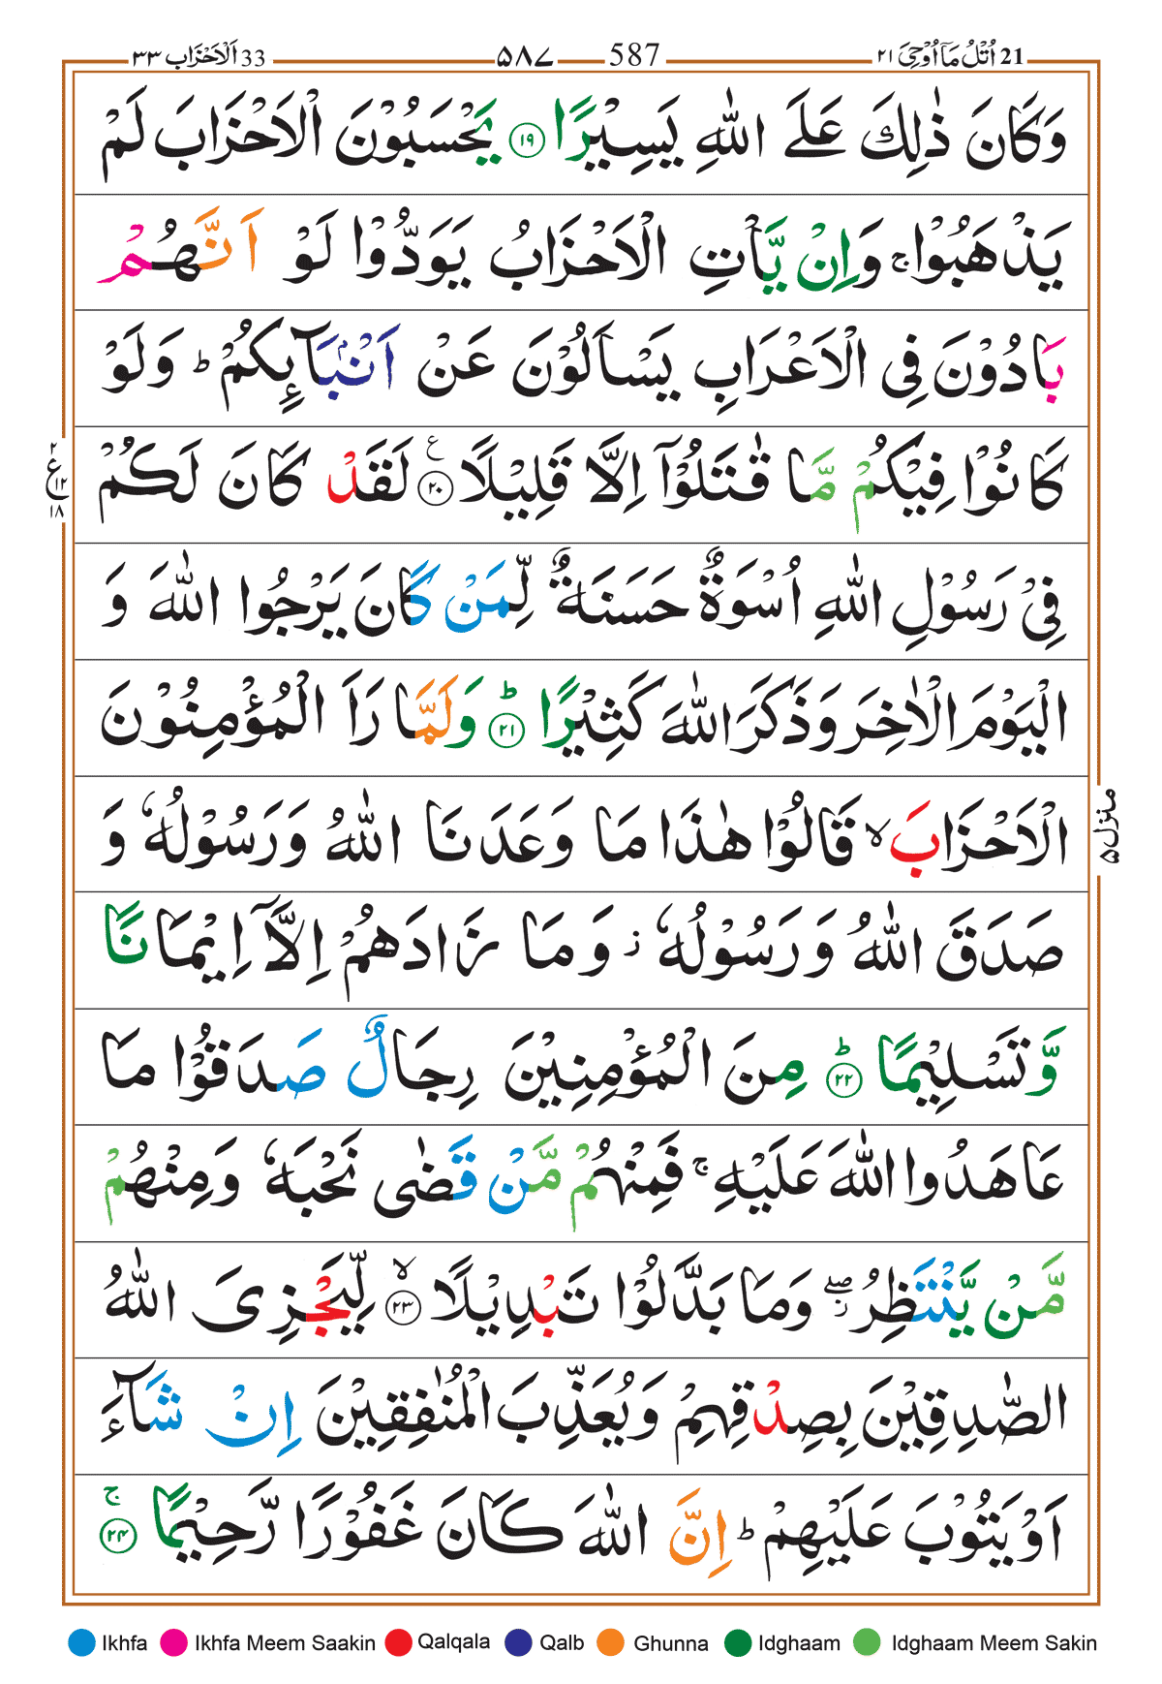 21 اُتْلُ مَآ اُوْحِیَ ٢١ 587 ٥٨٧ 33 اَلْاَحْزَاب ٣٣
وَكَانَ ذٰلِكَ عَلَى اللّٰهِ يَسِيْرًا ١٩ يَحْسَبُوْنَ الْاَحْزَابَ لَمْ
يَذْهَبُوْا ج وَاِنْ يَّاْتِ الْاَحْزَابُ يَوَدُّوْا لَوْ اَنَّهُمْ
بَادُوْنَ فِى الْاَعْرَابِ يَسْاَلُوْنَ عَنْ اَنْۢبَآئِكُمْ ط وَلَوْ
كَانُوْا فِيْكُمْ مَّا قٰتَلُوْٓا اِلَّا قَلِيْلًا ٢٠ ع لَقَدْ كَانَ لَكُمْ
٢ ع ١٢ ١٨
فِىْ رَسُوْلِ اللّٰهِ اُسْوَةٌ حَسَنَةٌ لِّمَنْ كَانَ يَرْجُوا اللّٰهَ وَ
الْيَوْمَ الْاٰخِرَ وَذَكَرَ اللّٰهَ كَثِيْرًا ٢١ ط وَلَمَّا رَاَ الْمُؤْمِنُوْنَ
الْاَحْزَابَ لا قَالُوْا هٰذَا مَا وَعَدَنَا اللّٰهُ وَرَسُوْلُهٗ وَ
منزل ٥
صَدَقَ اللّٰهُ وَرَسُوْلُهٗ ز وَمَا زَادَهُمْ اِلَّآ اِيْمَانًا
وَّتَسْلِيْمًا ٢٢ ط مِنَ الْمُؤْمِنِيْنَ رِجَالٌ صَدَقُوْا مَا
عَاهَدُوا اللّٰهَ عَلَيْهِ ج فَمِنْهُمْ مَّنْ قَضٰى نَحْبَهٗ وَمِنْهُمْ
مَّنْ يَّنْتَظِرُ صلے ز وَمَا بَدَّلُوْا تَبْدِيْلًا ٢٣ لا لِّيَجْزِىَ اللّٰهُ
الصّٰدِقِيْنَ بِصِدْقِهِمْ وَيُعَذِّبَ الْمُنٰفِقِيْنَ اِنْ شَآءَ
اَوْ يَتُوْبَ عَلَيْهِمْ ط اِنَّ اللّٰهَ كَانَ غَفُوْرًا رَّحِيْمًا ٢٤ ج
Ikhfa Ikhfa Meem Saakin Qalqala Qalb Ghunna Idghaam Idghaam Meem Sakin